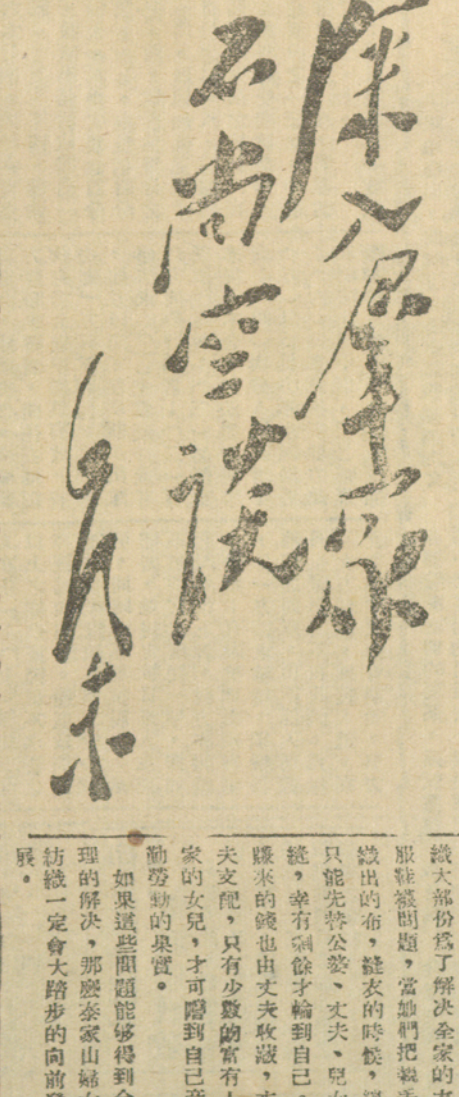 深入羣眾
不尚空談
毛澤東
織大部份爲了解决全家的衣
服鞋襪問題，當她們把親手
織出的布，縫衣的時候，還
只能先替公婆、丈夫、兒女
縫，幸有剩餘才輪到自己。
賺來的錢也由丈夫收藏，丈
夫支配，只有少數的富有人
家的女兒，才可嚐到自己辛
勤勞動的果實。
如果這些問題能够得到合
理的解决，那麽泰家山婦女
紡織一定會大踏步的向前發
展。